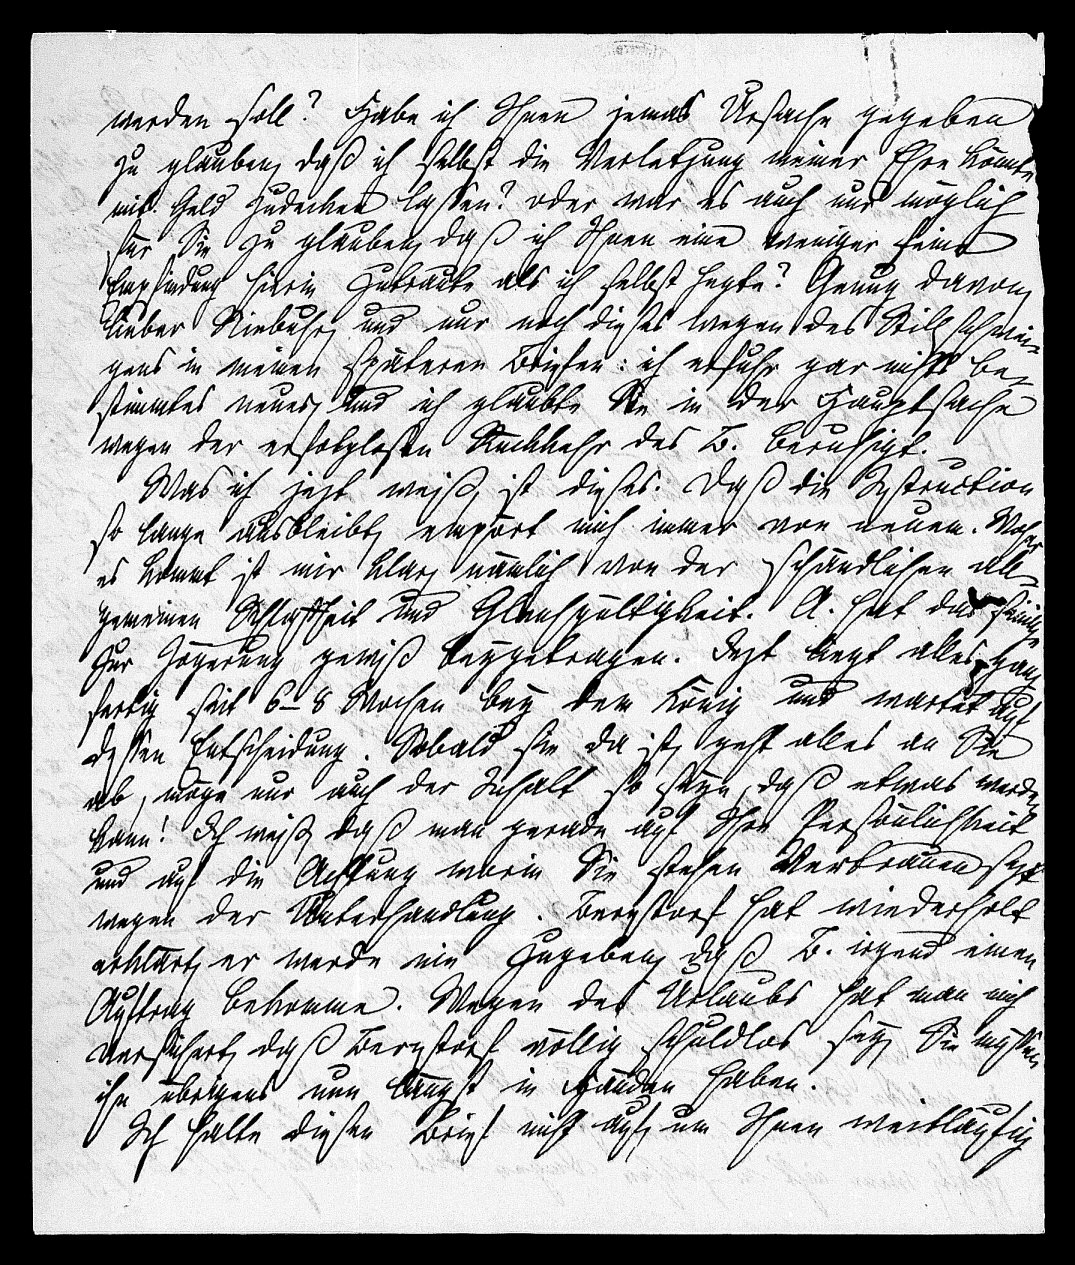 werden soll? Habe ich Ihnen jemals Ursache gegeben
zu glauben, daß ich selbst die Verletzung meiner Ehre könnte
mit Geld zudecken lassen? oder war es auch nur möglich
für Sie zu glauben, daß ich Ihnen eine weniger feine
Empfindung hierin zutraute als ich selbst hegte? Genug davon,
lieber Niebuhr, und nur noch dieses wegen des Stillschwei-
gens in meinen späteren Briefen: ich erfuhr gar nichts be-
stimmtes neues, und ich glaubte Sie in der Hauptsache
wegen der erfolglosen Rückkehr des B. beruhigt.
Was ich jezt weiß, ist dieses. Daß die Instruction
so lange ausbleibt, empört mich immer von neuem. Woher
es kommt ist mir klar, nämlich von der schändlichen all-
gemeinen Schlaffheit und Gleichgültigkeit. A. hat das
zur Zögerung gewiß beygetragen. Jezt liegt alles ganz
fertig seit 6–8 Wochen bey dem König und wartet auf
dessen Entscheidung. Sobald sie da ist, geht alles an Sie
ab, möge nur auch der Inhalt so seyn, daß etwas werden
kann! Ich weiß, daß man gerade auf Ihre Persönlichkeit
und auf die Achtung worin Sie stehen Vertrauen sezt
wegen der Unterhandlung. Bernstorf hat wiederholt
erklärt, er werde nie zugeben, daß B. irgend einen
Auftrag bekomme. Wegen des Urlaubs hat man mich
versichert, daß Bernstorf völlig schuldlos sey, Sie müssen
ihn übrigens nun längst in Händen haben.
Ich halte diesen Brief nicht auf, um Ihnen weitläufig